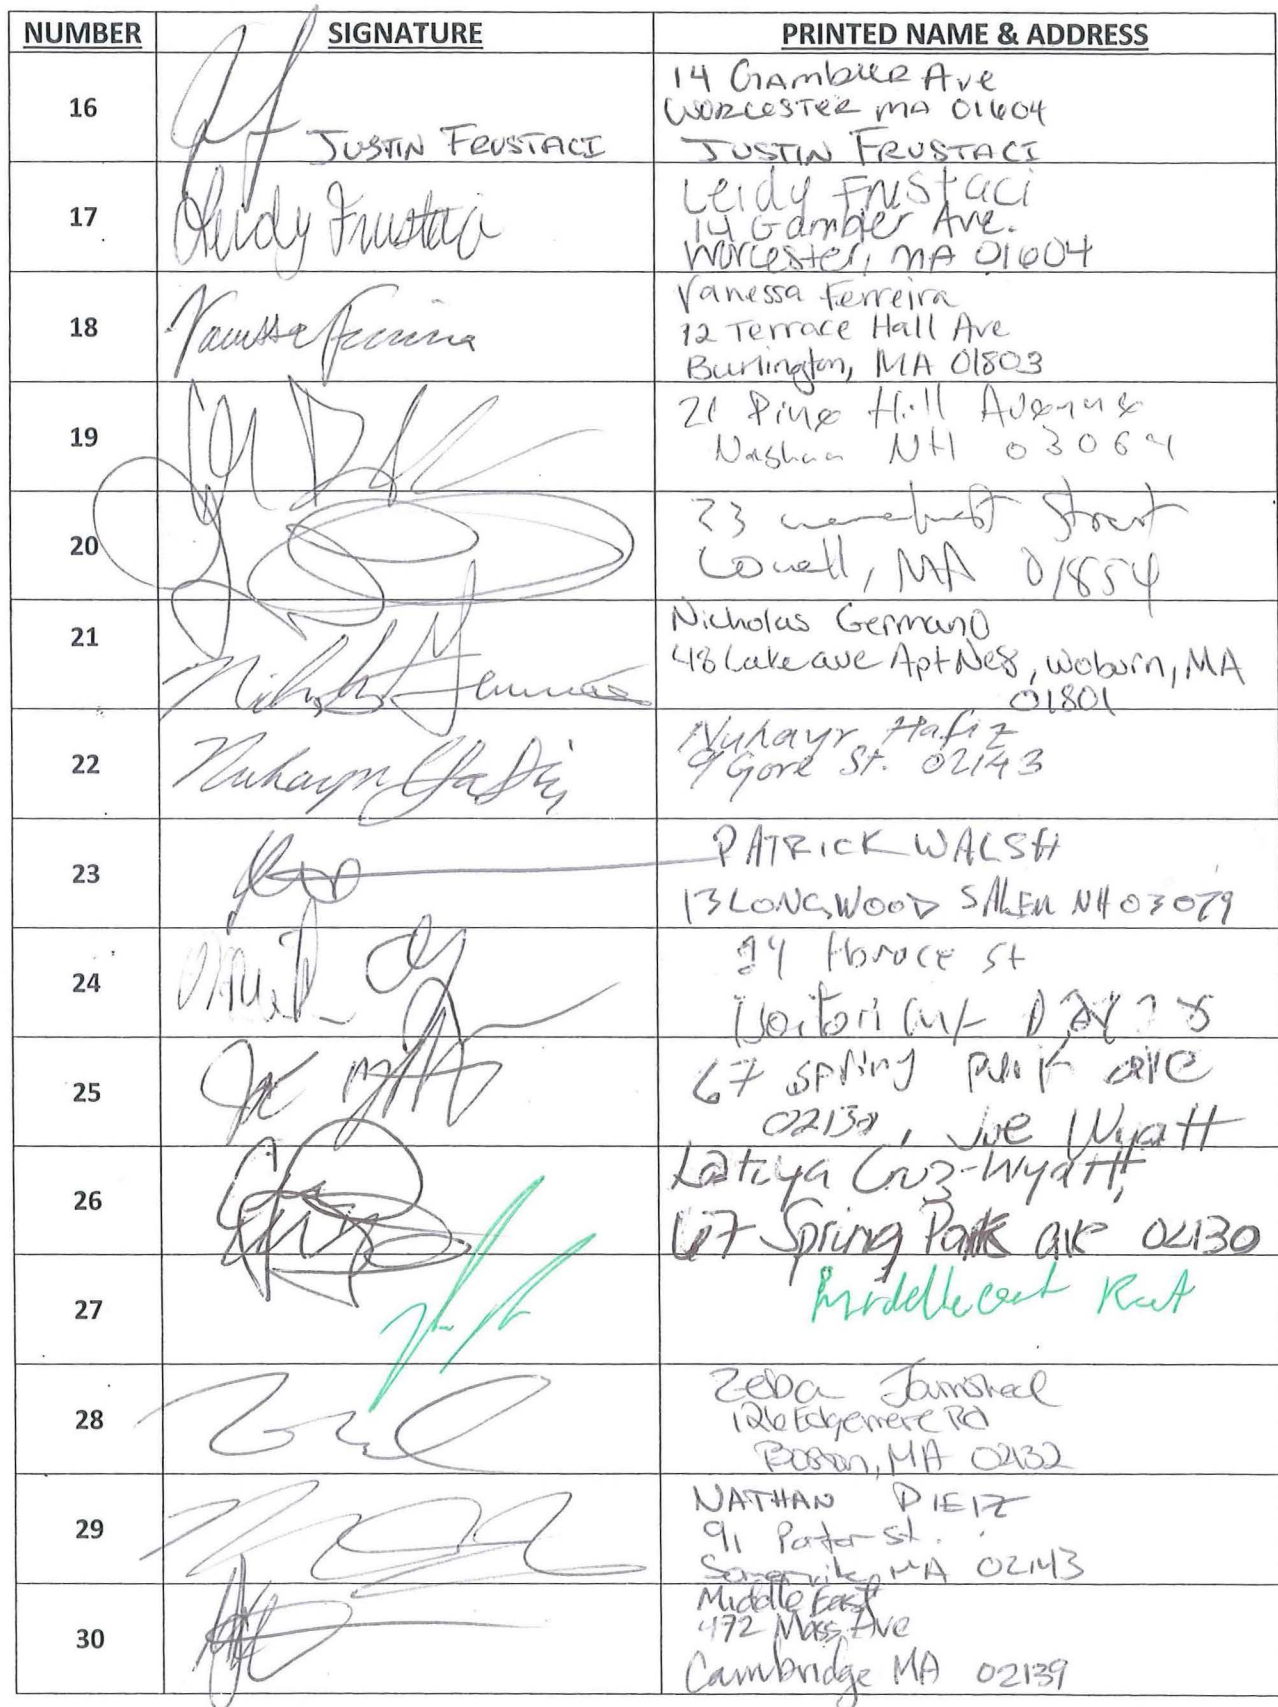 NUMBER SIGNATURE PRINTED NAME & ADDRESS
16
14 Gambier Ave
WORCESTER MA 01604
JUSTIN FRUSTACI JUSTIN FRUSTACI
17 Leidy Frustaci
Leidy Frustaci
14 Gambier Ave.
Worcester, MA 01604
18 Vanessa Ferreira
Vanessa Ferreira
12 Terrace Hall Ave
Burlington, MA 01803
19
21 Pine Hill Avenue
Nashua NH 03064
20
23 Street
Lowell, MA 01854
21
Nicholas Germano
48 Lake ave Apt, Woburn, MA
01801
22 Nuhayr Hafiz
Nuhayr Hafiz
9 Gore St. 02143
23
PATRICK WALSH
13 LONGWOOD SALEM NH 03079
24
Horace St
25
67 Spring Park ave
02130, Joe Wyatt
26
Cruz-Wyatt,
67 Spring Park ave 02130
27
28
Zeba Jamsheed
126 Edgemere Rd
Boston, MA 02132
29
NATHAN
91 Porter St.
Somerville, MA 02143
30
Middle East
472 Mass Ave
Cambridge MA 02139